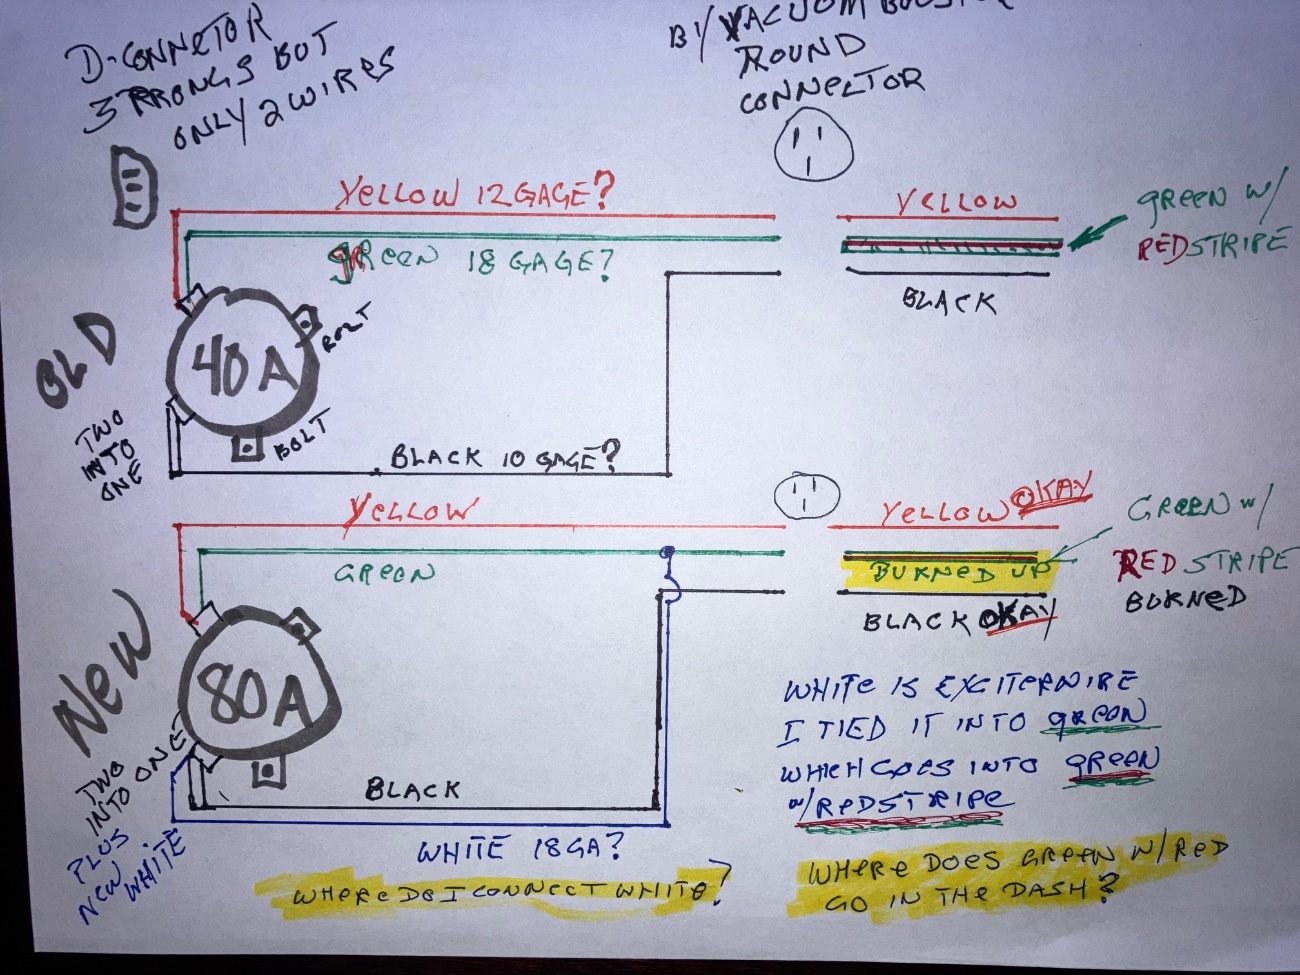 D-CONNETOR
3 PRONGS BUT
ONLY 2 WIRES
BY VACUUM BOOSTER
ROUND
CONNELTOR
YELLOW 12 GAGE?
GREEN 18 GAGE?
YELLOW
GREEN W/
REDSTRIPE
BLACK
OLD
40 A
BOLT
BOLT
TWO
INTO
ONE
BLACK 10 GAGE?
YELLOW
GREEN
YELLOW OKAY
BURNED UP
BLACK OKAY
GREEN W/
RED STRIPE
BURNED
NEW
80A
TWO
INTO ONE
PLUS
NEW WHITE
BLACK
WHITE 18 GA?
WHERE DO I CONNECT WHITE?
WHITE IS EXCITERWIRE
I TIED IT INTO GREEN
WHICH GOES INTO GREEN
W/REDSTRIPE
WHERE DOES GREEN W/RED
GO IN THE DASH?